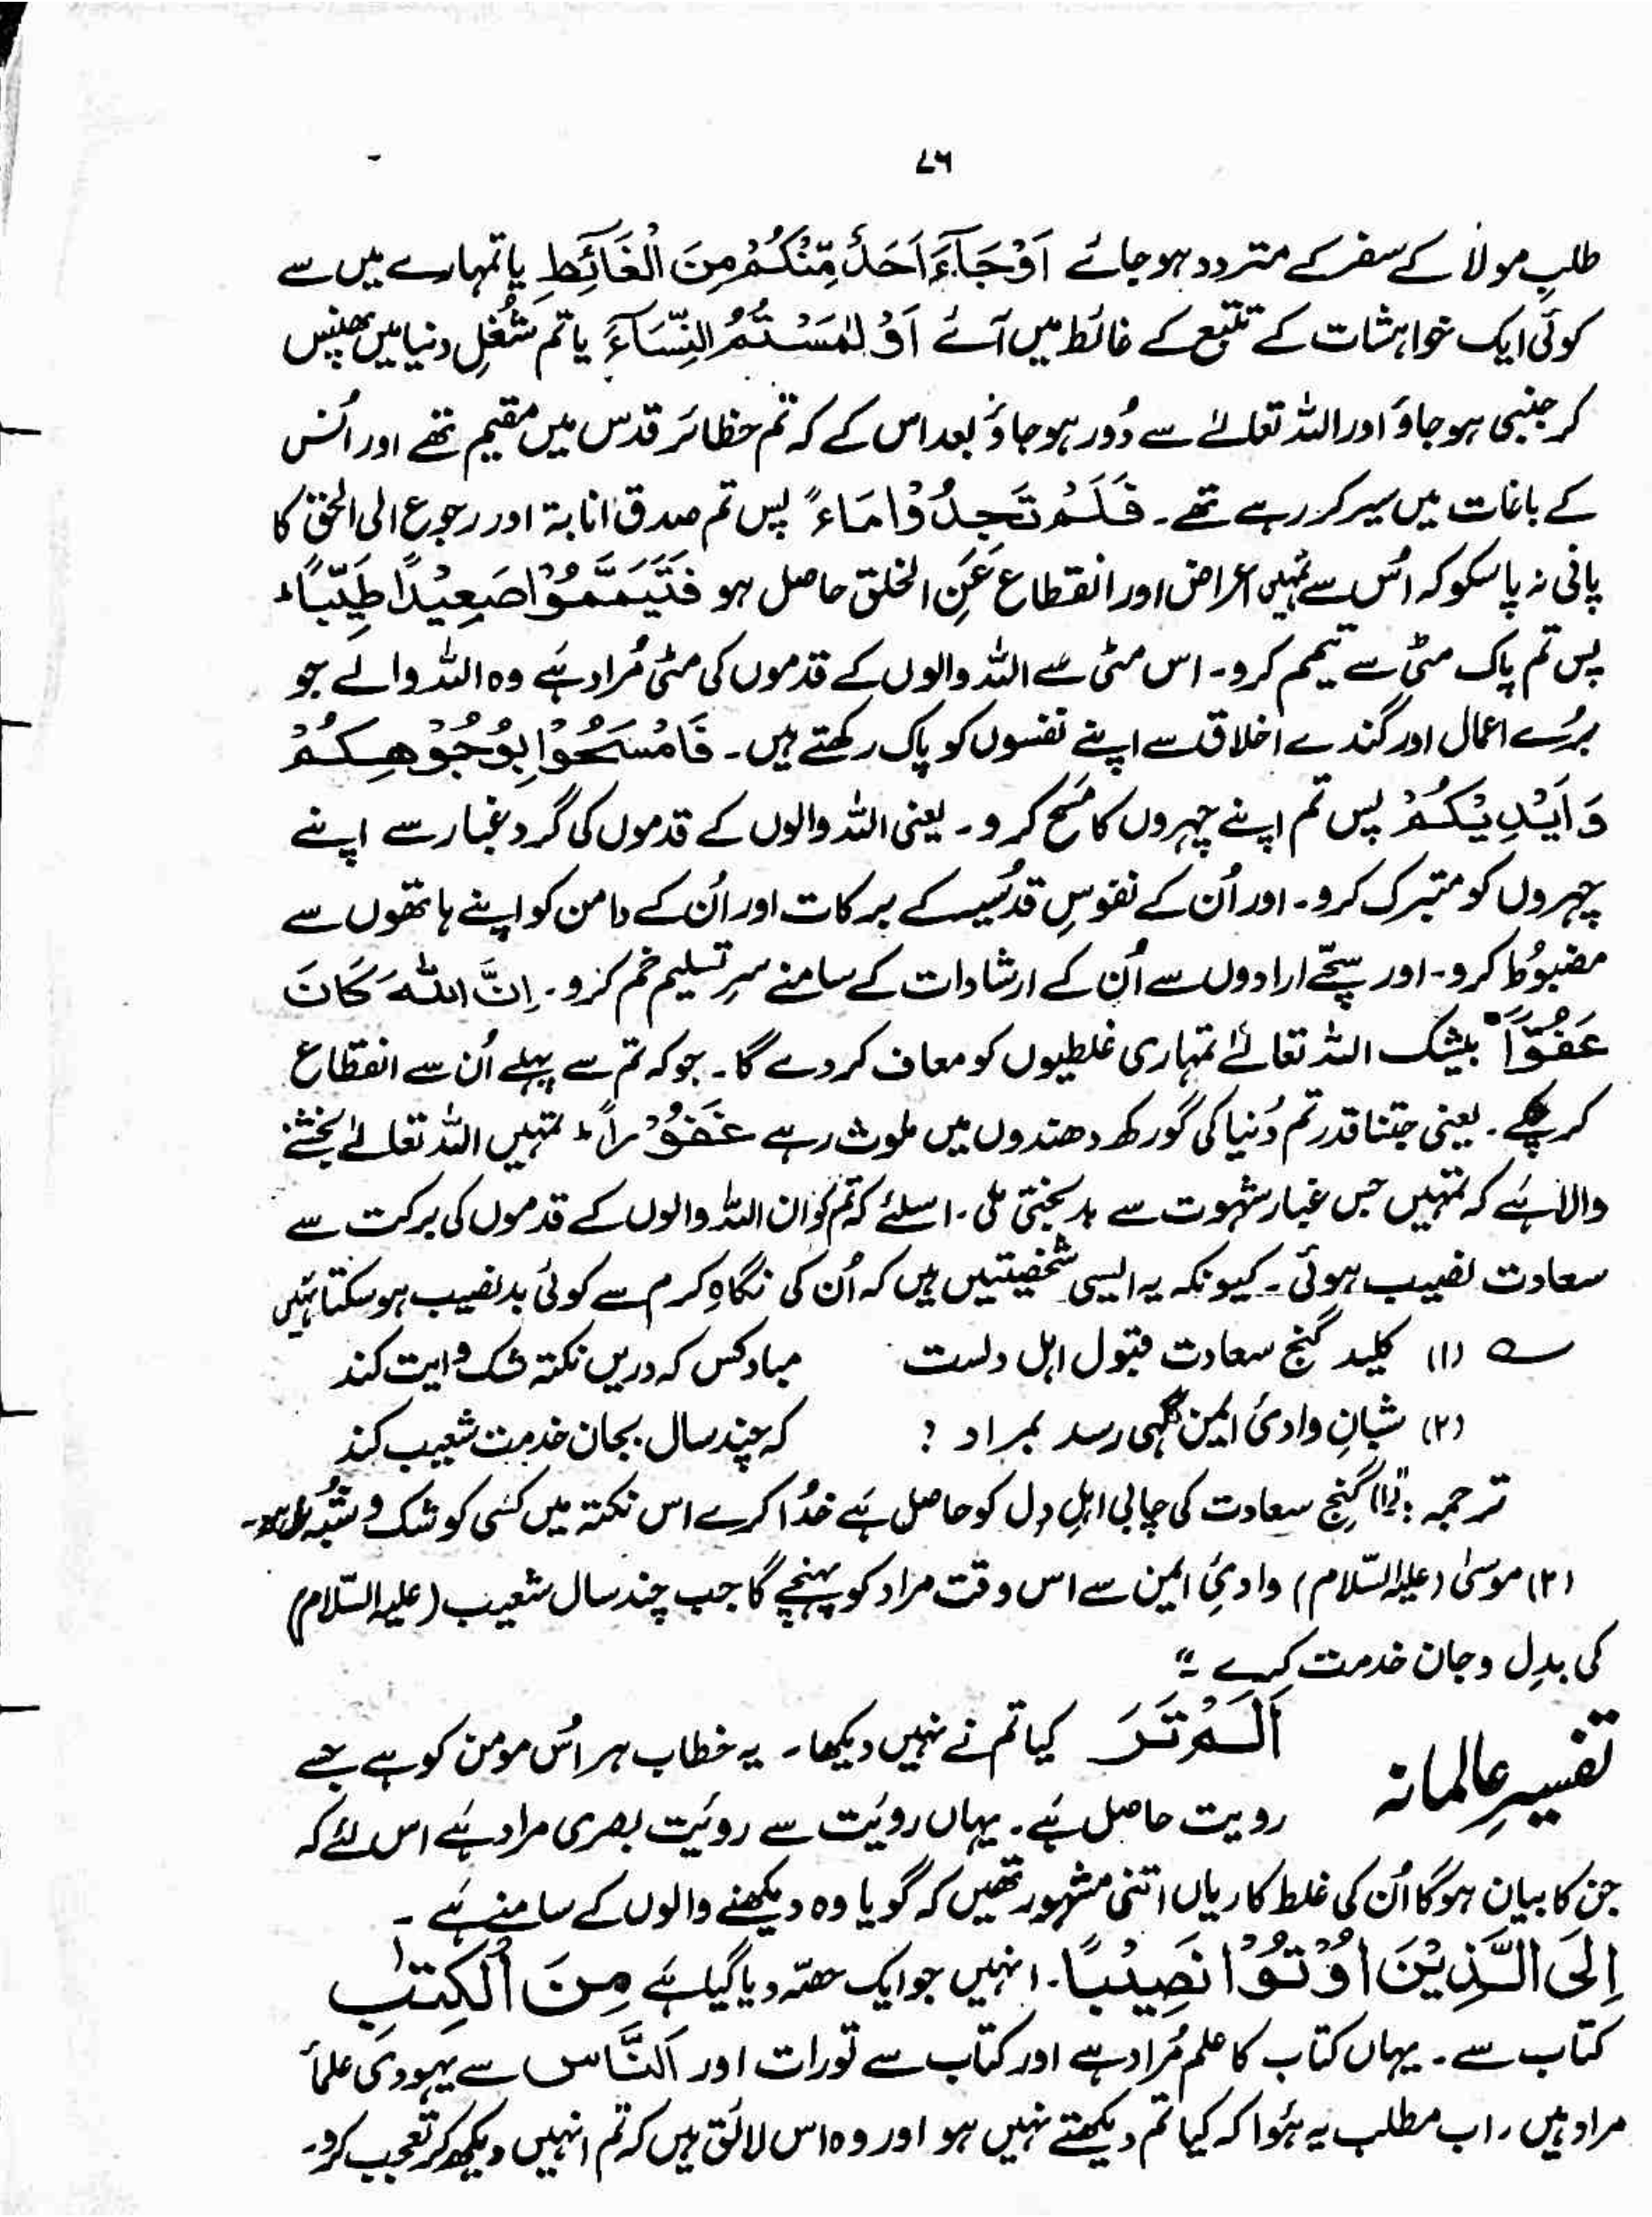 ۷۶
طلبِ مولا کے سفر کے متردد ہو جائے اَوْ جَآءَ اَحَدٌ مِّنْكُمْ مِنَ الْغَآئِطِ یا تمہارے میں سے
کوئی ایک خواہشات کے تتبع کے غائط میں آئے اَوْ لٰمَسْتُمُ النِّسَآءَ یا تم شُغلِ دنیا میں پھنس
کر جنبی ہو جاؤ اور اللہ تعالےٰ سے دُور ہو جاؤ بعد اس کے کہ تم حظائر قدس میں مقیم تھے اور اُنس
کے باغات میں سیر کر رہے تھے۔ فَلَمْ تَجِدُوْا مَاءً پس تم صدق انابۃ اور رجوع الی الحق کا
پانی نہ پا سکو کہ اُس سے تمہیں اعراض اور انقطاع عَنِ الخلق حاصل ہو فَتَيَمَّمُوْا صَعِيْدًا طَيِّبًا ء
پس تم پاک مٹی سے تیمم کرو۔ اس مٹی سے اللہ والوں کے قدموں کی مٹی مُراد ہے وہ اللہ والے جو
بُرے اعمال اور گندے اخلاق سے اپنے نفسوں کو پاک رکھتے ہیں۔ فَامْسَحُوْا بِوُجُوْهِكُمْ
وَاَيْدِيْكُمْ پس تم اپنے چہروں کا مَسح کرو۔ یعنی اللہ والوں کے قدموں کی گرد غبار سے اپنے
چہروں کو متبرک کرو۔ اور اُن کے نفوسِ قدسیہ کے برکات اور اُن کے دامن کو اپنے ہاتھوں سے
مضبُوط کرو۔ اور سچّے ارادوں سے اُن کے ارشادات کے سامنے سرِ تسلیم خم کرو۔ اِنَّ اللّٰهَ كَانَ
عَفُوًّا بیشک اللہ تعالےٰ تمہاری غلطیوں کو معاف کر دے گا۔ جو کہ تم سے پہلے اُن سے انقطاع
کر چکے۔ یعنی جتنا قدر تم دُنیا کی گورکھ دھندوں میں ملوث رہے غَفُوْرًا ء تمہیں اللہ تعالےٰ بخشنے
والا ہے کہ تمہیں جس غبار شہوت سے بدبختی ملی۔ اسلئے کہ تم کو ان اللہ والوں کے قدموں کی برکت سے
سعادت نصیب ہوئی۔ کیونکہ یہ ایسی شخصیتیں ہیں کہ اُن کی نگاہِ کرم سے کوئی بدنصیب ہو سکتا نہیں
؎ (۱) کلید گنج سعادت قبول اہل دلست مباد کس کہ دریں نکتہ شک و ایت کند
(۲) شبانِ وادیٔ ایمن گہی رسد بمراد : کہ چند سال بجان خدمت شعیب کند
ترجمہ : "(۱) گنج سعادت کی چابی اہلِ دل کو حاصل ہے خدُا کرے اس نکتہ میں کسی کو شک و شُبہ نہ ہو۔
(۲) موسیٰ (علیہ السّلام) وادیٔ ایمن سے اس وقت مراد کو پہنچے گا جب چند سال شعیب (علیہ السّلام)
کی بدل و جان خدمت کرے ۔"
تفسیرِ عالمانہ
اَلَمْ تَرَ کیا تم نے نہیں دیکھا۔ یہ خطاب ہر اُس مومن کو ہے جسے
رویت حاصل ہے۔ یہاں روئیت سے روئیت بصری مراد ہے اس لئے کہ
جن کا بیان ہو گا اُن کی غلط کاریاں اتنی مشہور تھیں کہ گویا وہ دیکھنے والوں کے سامنے ہے ۔
اِلَى الَّذِيْنَ اُوْتُوْا نَصِيْبًا۔ انہیں جو ایک حصّہ دیا گیا ہے مِنَ الْكِتٰبِ
کتاب سے۔ یہاں کتاب کا علم مُراد ہے اور کتاب سے تورات اور اَلنَّاس سے یہودی علمأ
مراد ہیں۔ اب مطلب یہ ہُوا کہ کیا تم دیکھتے نہیں ہو اور وہ اس لائق ہیں کہ تم انہیں دیکھ کر تعجب کرو۔